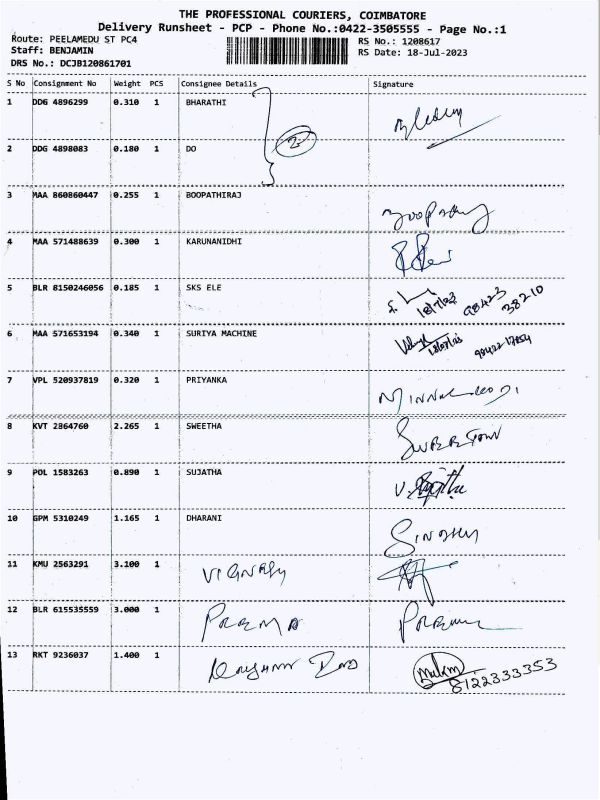 THE PROFESSIONAL COURIERS, COIMBATORE
Delivery Runsheet - PCP - Phone No.:0422-3505555 - Page No.:1
Route: PEELAMEDU ST PC4 RS No.: 1208617
Staff: BENJAMIN RS Date: 18-Jul-2023
DRS No.: DCJB120861701
S No Consignment No Weight PCS Consignee Details Signature
1 DDG 4896299 0.310 1 BHARATHI
2 DDG 4898083 0.180 1 DO 2
3 MAA 860860447 0.255 1 BOOPATHIRAJ
4 MAA 571488639 0.300 1 KARUNANIDHI
5 BLR 8150246056 0.185 1 SKS ELE 18/7/23 98423 38210
6 MAA 571653194 0.340 1 SURIYA MACHINE
7 VPL 520937819 0.320 1 PRIYANKA
8 KVT 2864760 2.265 1 SWEETHA
9 POL 1583263 0.890 1 SUJATHA
10 GPM 5310249 1.165 1 DHARANI
11 KMU 2563291 3.100 1
12 BLR 615535559 3.000 1 PREMA
13 RKT 9236037 1.400 1 8122333353